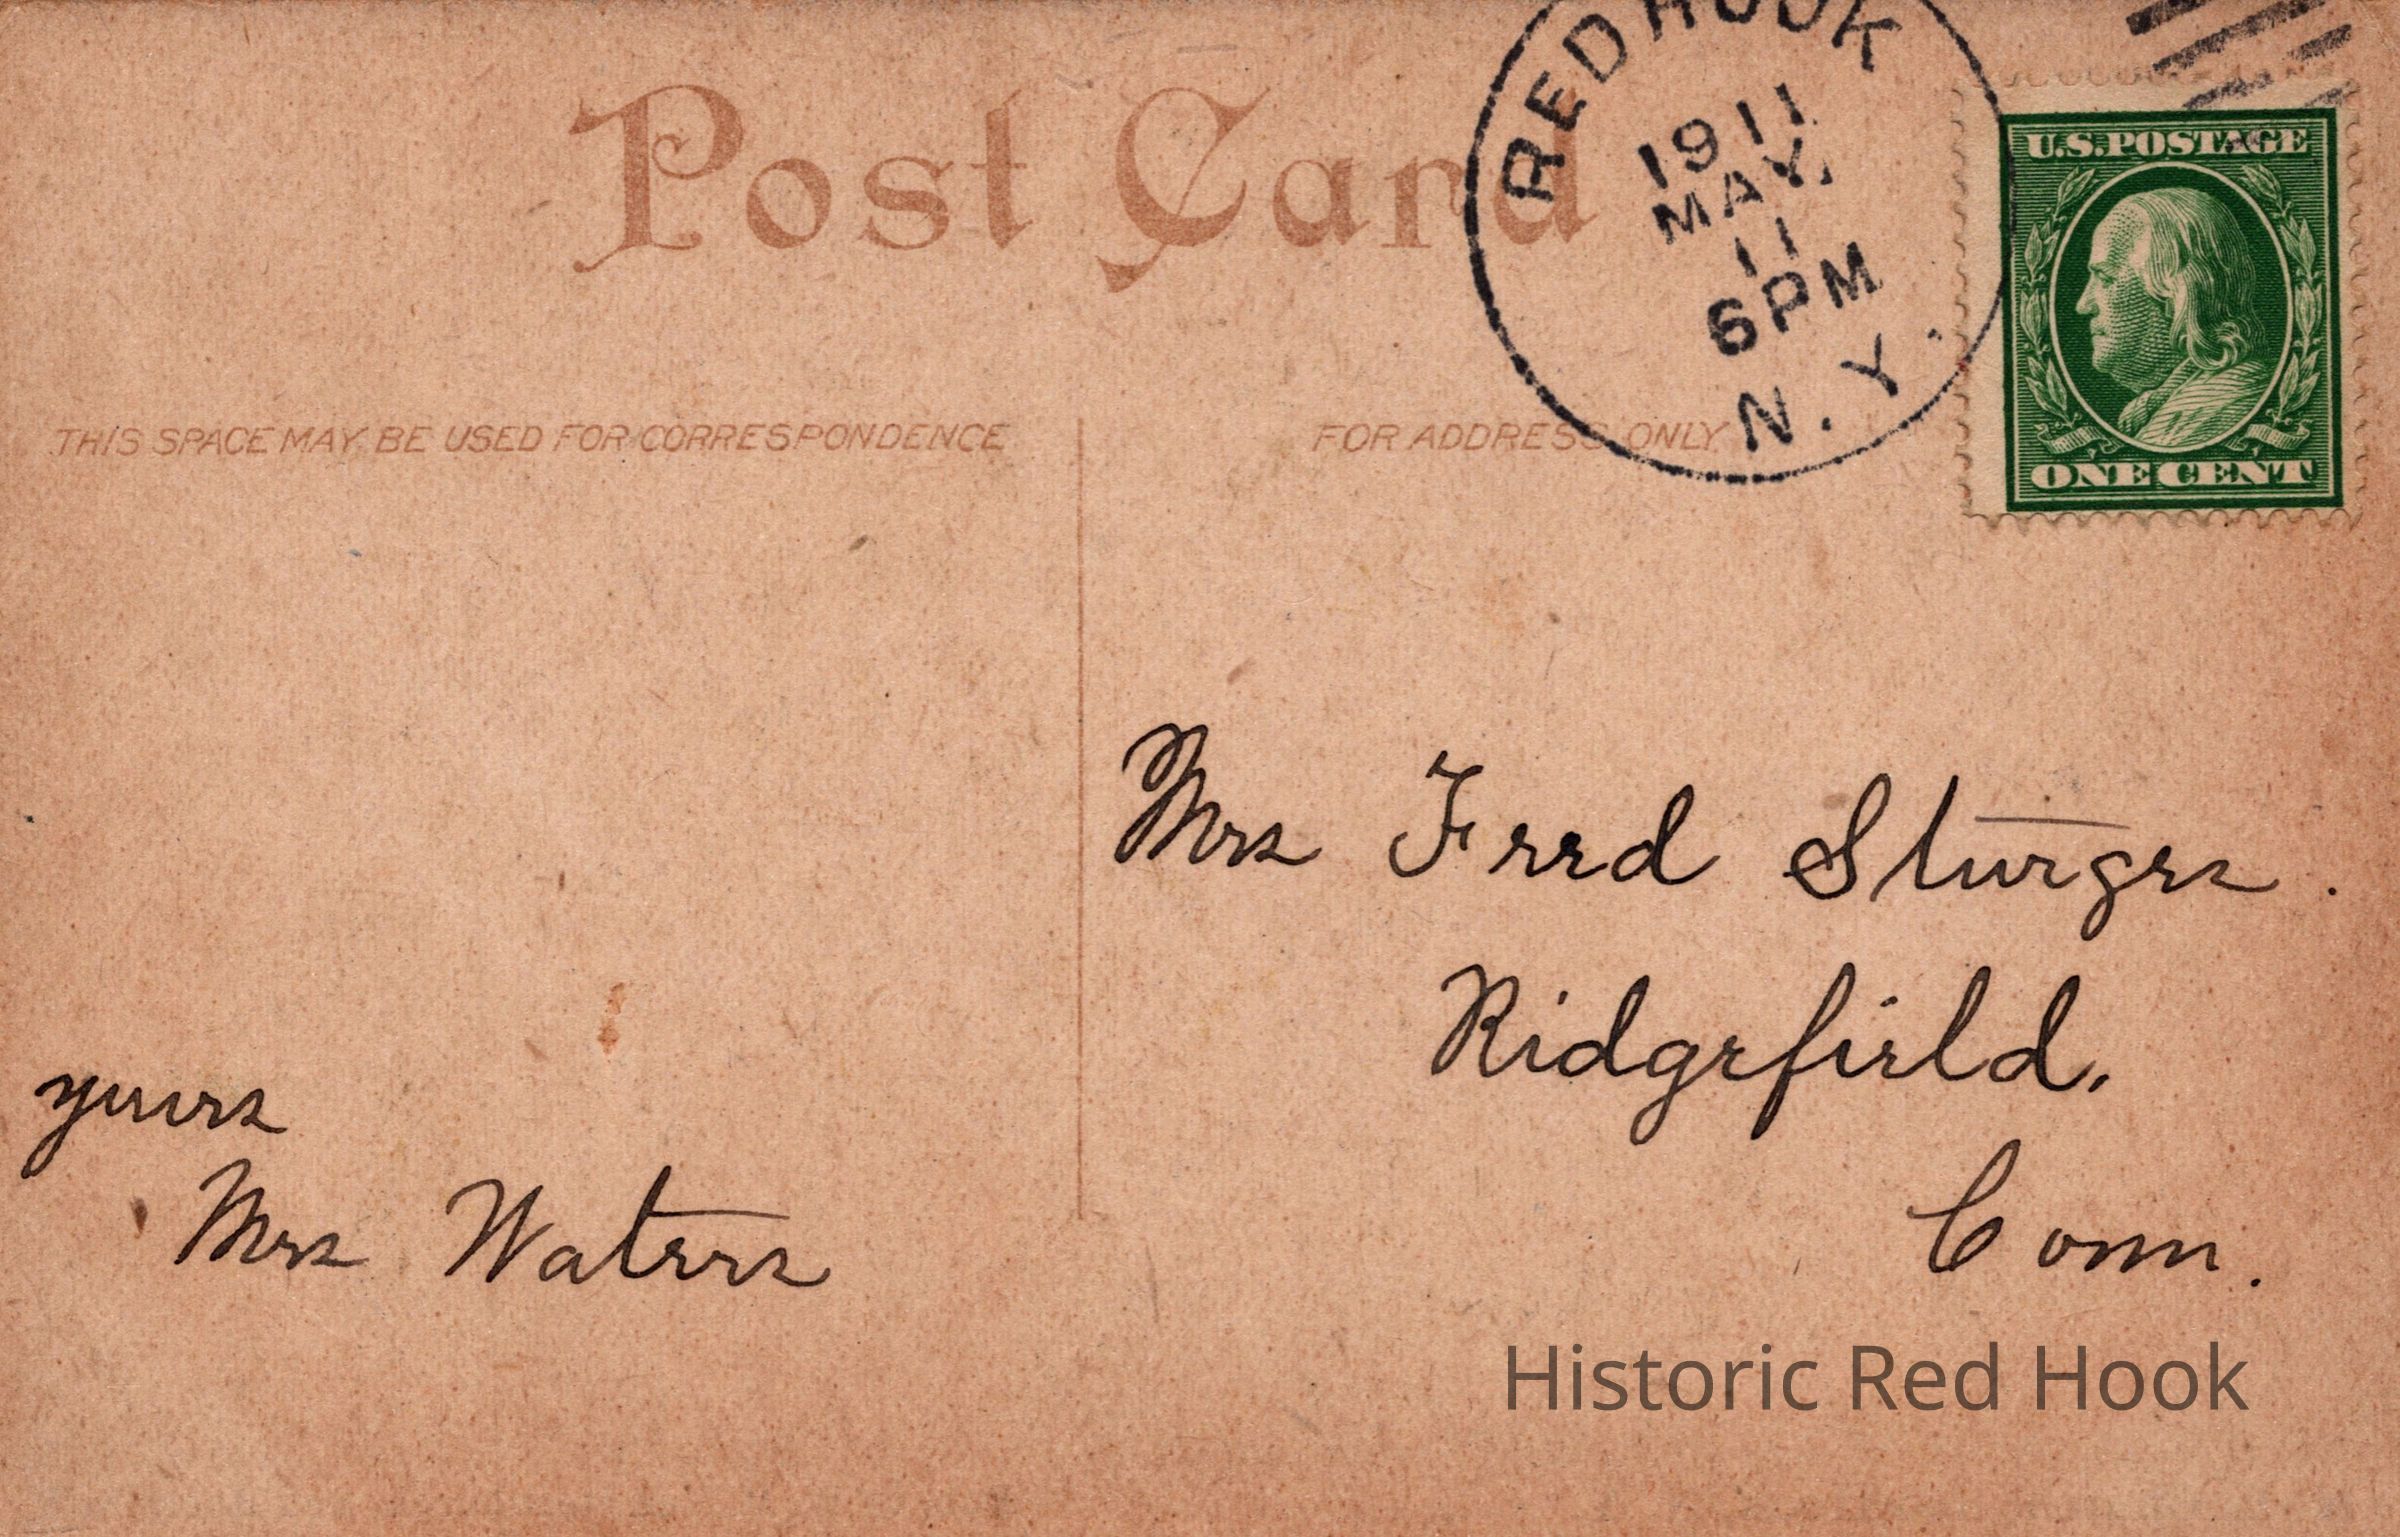 Post Card
RED HOOK
1911
MAY.
11
6PM
N.Y.
U.S. POSTAGE
ONE CENT
THIS SPACE MAY BE USED FOR CORRESPONDENCE
FOR ADDRESS ONLY.
Mrs Fred Sturges.
Ridgefield.
Conn.
yours
Mrs Waters
Historic Red Hook